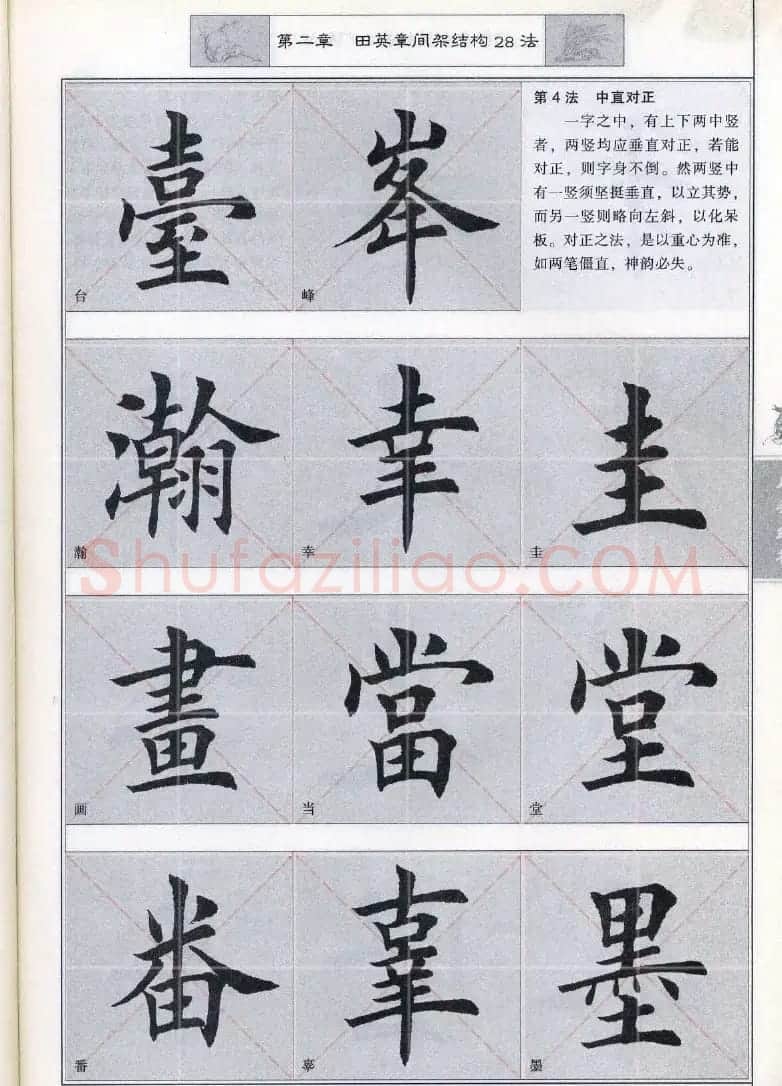 第二章 田英章间架结构28法
第4法 中直对正
一字之中，有上下两中竖
者，两竖均应垂直对正，若能
对正，则字身不倒。然两竖中
有一竖须坚挺垂直，以立其势，
而另一竖则略向左斜，以化呆
板。对正之法，是以重心为准，
如两笔僵直，神韵必失。
臺 峯
台 峰
瀚 幸 圭
瀚 幸 圭
Shufaziliao.COM
畫 當 堂
画 当 堂
番 辜 墨
番 辜 墨